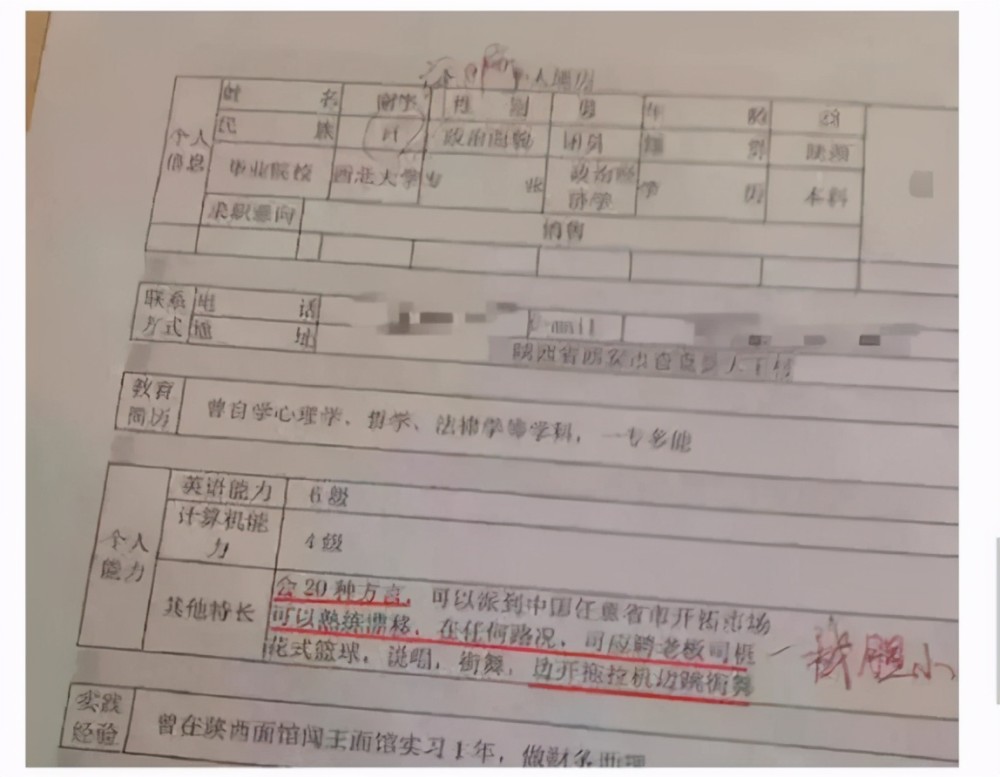 人简历
个人信息 姓 名 性 别 男 年 龄
民 族 汉 政治面貌 团员 籍 贯 陕西
毕业院校 西北大学 专 业 政治经济学 学 历 本科
求职意向 销售
联系方式 电 话 E-mail
地 址
教育简历 曾自学心理学、哲学、法律学等学科，一专多能
个人能力 英语能力 6级
计算机能力 4级
其他特长 会20种方言，可以派到中国任意省市开拓市场
可以熟练漂移，在任何路况，可应聘老板司机
花式篮球，说唱，街舞，边开拖拉机边跳街舞
我胆小
实践经验 曾在陕西面馆闯王面馆实习1年，做财务